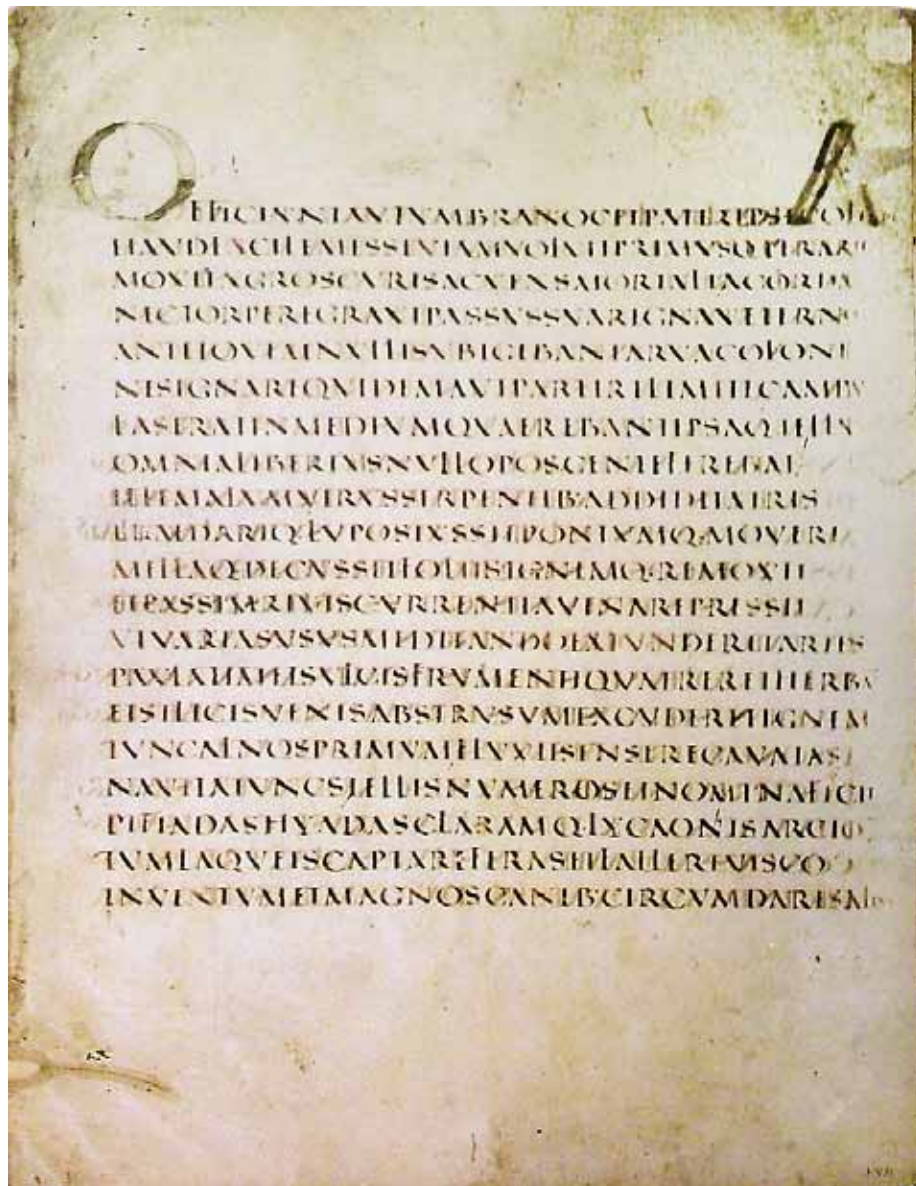 OFFICIVNTAVTVMBRANOCETPATERIPSECOLE
HAVDFACILEMESSEVIAMVOLVITPRIMVSQ·PERARTE
MOVITAGROSCVRISACVENSMORTALIACORDA
NECTORPEREGRAVIPASSVSSVAREGNAVETERNO
ANTEIOVEMNVLLISVBIGEBANTARVACOLONI
NESIGNAREQVIDEMAVTPARTIRILIMITECAMPV
FASERATINMEDIVMQVAEREBANTIPSAQ·TELLVS
OMNIALIBERIVSNVLLOPOSCENTEFEREBAT
ILLEMALVMVIRVSSERPENTIB·ADDIDITATRIS
PRAEDARIQ·LVPOSIVSSITPONTVMQ·MOVERI
MELLAQ·DECVSSITFOLIISIGNEMQ·REMOVIT
ETPASSIMRIVISCVRRENTIAVINAREPRESSIT
VTVARIASVSVSMEDITANDOEXTVNDERETARTIS
PAVLATIMETSVLCISFRVMENTIQVAERERETHERBA
ETSILICISVENISABSTRVSVMEXCVDERETIGNEM
TVNCALNOSPRIMVMFLVVIISENSERECAVATAS
NAVITATVNCSTELLISNVMEROSETNOMINAFECIT
PLEIADASHYADASCLARAMQ·LYCAONISARCTO
TVMLAQVEISCAPTAREFERASETFALLEREVISCO
INVENTVMETMAGNOSCANIB·CIRCVMDARESAL